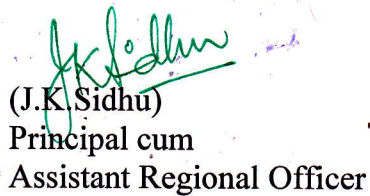 JKSidhu
(J.K.Sidhu)
Principal cum
Assistant Regional Officer